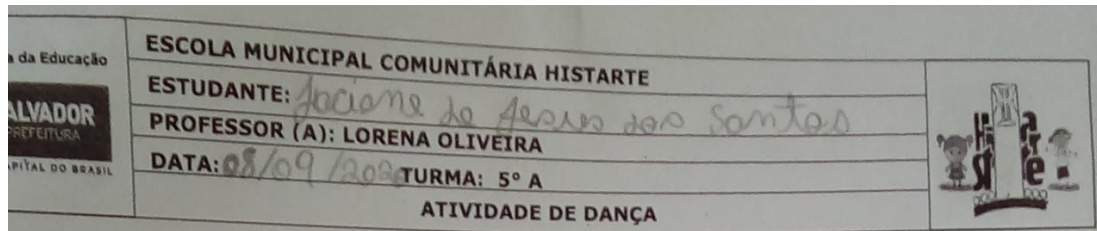 a da Educação
ALVADOR
PREFEITURA
APITAL DO BRASIL
ESCOLA MUNICIPAL COMUNITÁRIA HISTARTE
ESTUDANTE: Jociane de Jesus dos Santos
PROFESSOR (A): LORENA OLIVEIRA
DATA: 08/09/2020 TURMA: 5° A
ATIVIDADE DE DANÇA
Hist
Arte